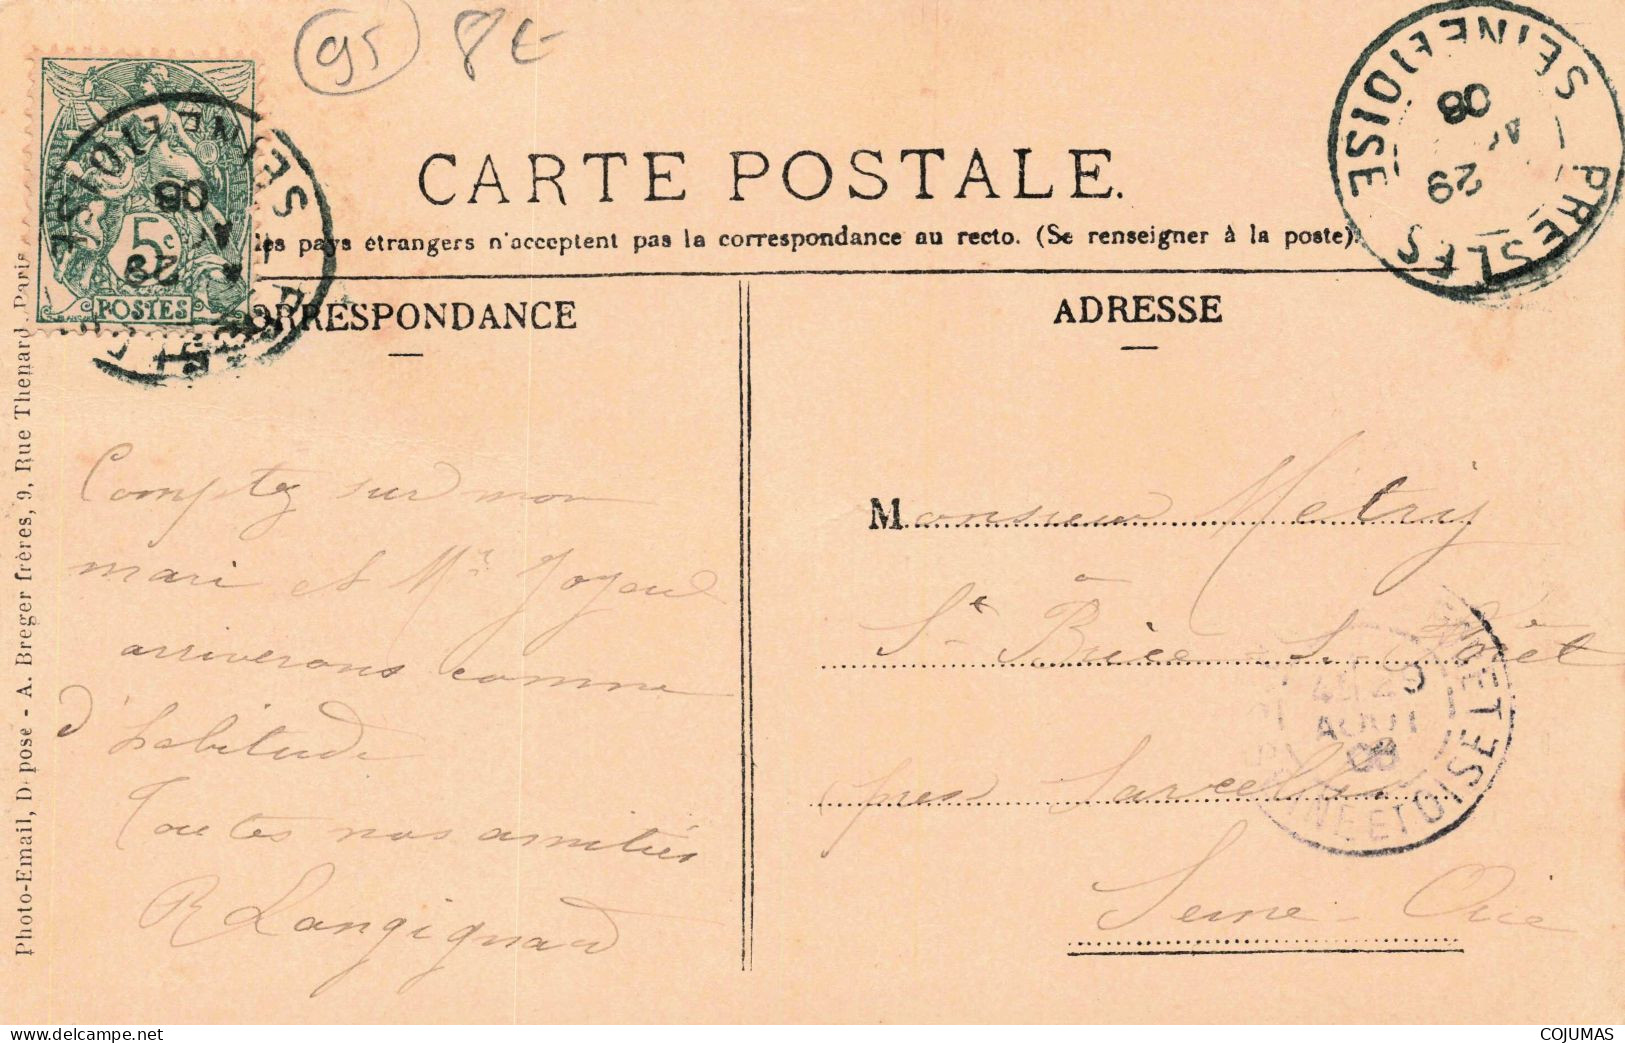 95 8€
CARTE POSTALE.
les pays étrangers n'acceptent pas la correspondance au recto. (Se renseigner à la poste).
ORRESPONDANCE
ADRESSE
5c
POSTES
SEINE ET OISE
29
08
PRESLES
SEINE ET OISE
29
08
Photo-Email, D pose - A. Breger frères, 9, Rue Thenard, Paris
Comptez sur mon
mari et Mr
arriverons comme
d'habitude
Toutes nos amitiés
R Langignard
Monsieur Métry
St Brice S. Forêt
près Sarcelles
Seine-Oise
AOUT
08
INE ET OISE
delcampe.net
COJUMAS